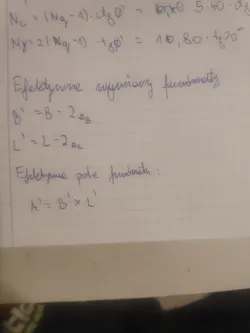 Nc = (Nq-1) · ctgΦ' = 5.40 ·
Nγ = 2(Nq-1) · tgΦ' = 10,80 · tg
Efektywne wymiary fundamentu
B' = B - 2eB
L' = L - 2eL
Efektywne pole fundamentu:
A' = B' × L'